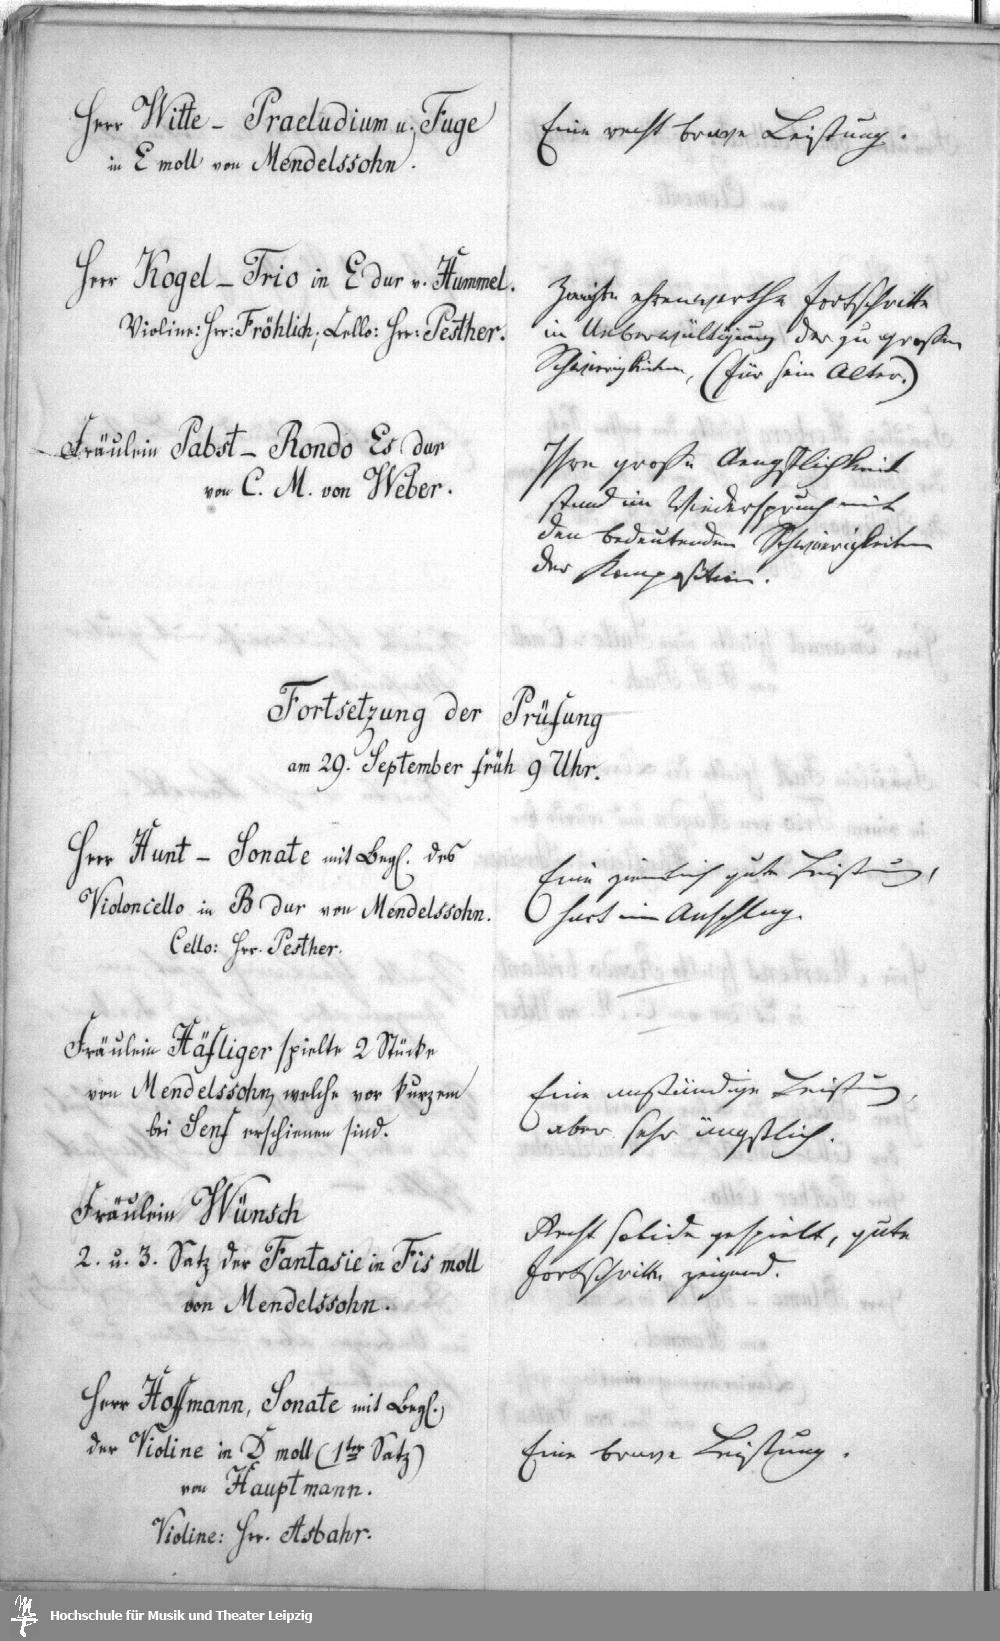 Herr Witte – Praeludium u. Fuge
in E moll von Mendelssohn.
Eine recht brave Leistung.
Herr Kogel – Trio in E dur v. Hummel.
Violine: Hrr: Fröhlich; Cello: Hrr: Pesther.
Zeigte ehrenwerthe Fortschritte
in Ueberwältigung der zu großen
Schwierigkeiten, (für sein Alter.)
Fräulein Pabst – Rondo Es dur
von C. M. von Weber.
Ihre große Aengstlichkeit
stand im Wiederspruch mit
den bedeutenden Schwierigkeiten
der Komposition.
Fortsetzung der Prüfung
am 29. September früh 9 Uhr.
Herr Hunt – Sonate mit Begl. des
Violoncello in B dur von Mendelssohn.
Cello: Hrr. Pesther.
Eine ziemlich gute Leistung,
hart im Anschlag.
Fräulein Häfliger spielte 2 Stücke
von Mendelssohn, welche vor kurzem
bei Senf erschienen sind.
Eine anständige Leistung,
aber sehr ängstlich.
Fräulein Wünsch
2. u. 3. Satz der Fantasie in Fis moll
von Mendelssohn.
Recht solide gespielt, gute
Fortschritte zeigend.
Herr Hoffmann, Sonate mit Begl.
der Violine in D moll (1ter Satz)
von Hauptmann.
Violine: Hrr. Asbahr.
Eine brave Leistung.
Hochschule für Musik und Theater Leipzig